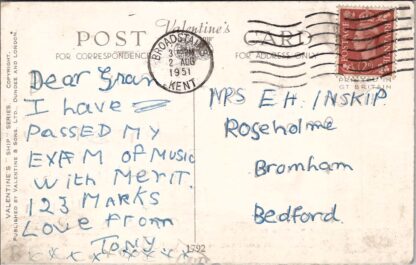 Valentine's
POST CARD
FOR CORRESPONDENCE
FOR ADDRESS ONLY
BROADSTAIRS
2 AUG
1951
KENT
Dear Gran
I have
PASSED MY
EXAM OF MUSIC
With MERIT.
123 MARKS
Love From
TONY.
x x x x x x x x x
MRS E H. INSKIP
Roseholme
Bromham
Bedford.
GT BRITAIN
VALENTINE'S "SHIP" SERIES. COPYRIGHT.
PUBLISHED BY VALENTINE & SONS. LTD. DUNDEE AND LONDON.
1792